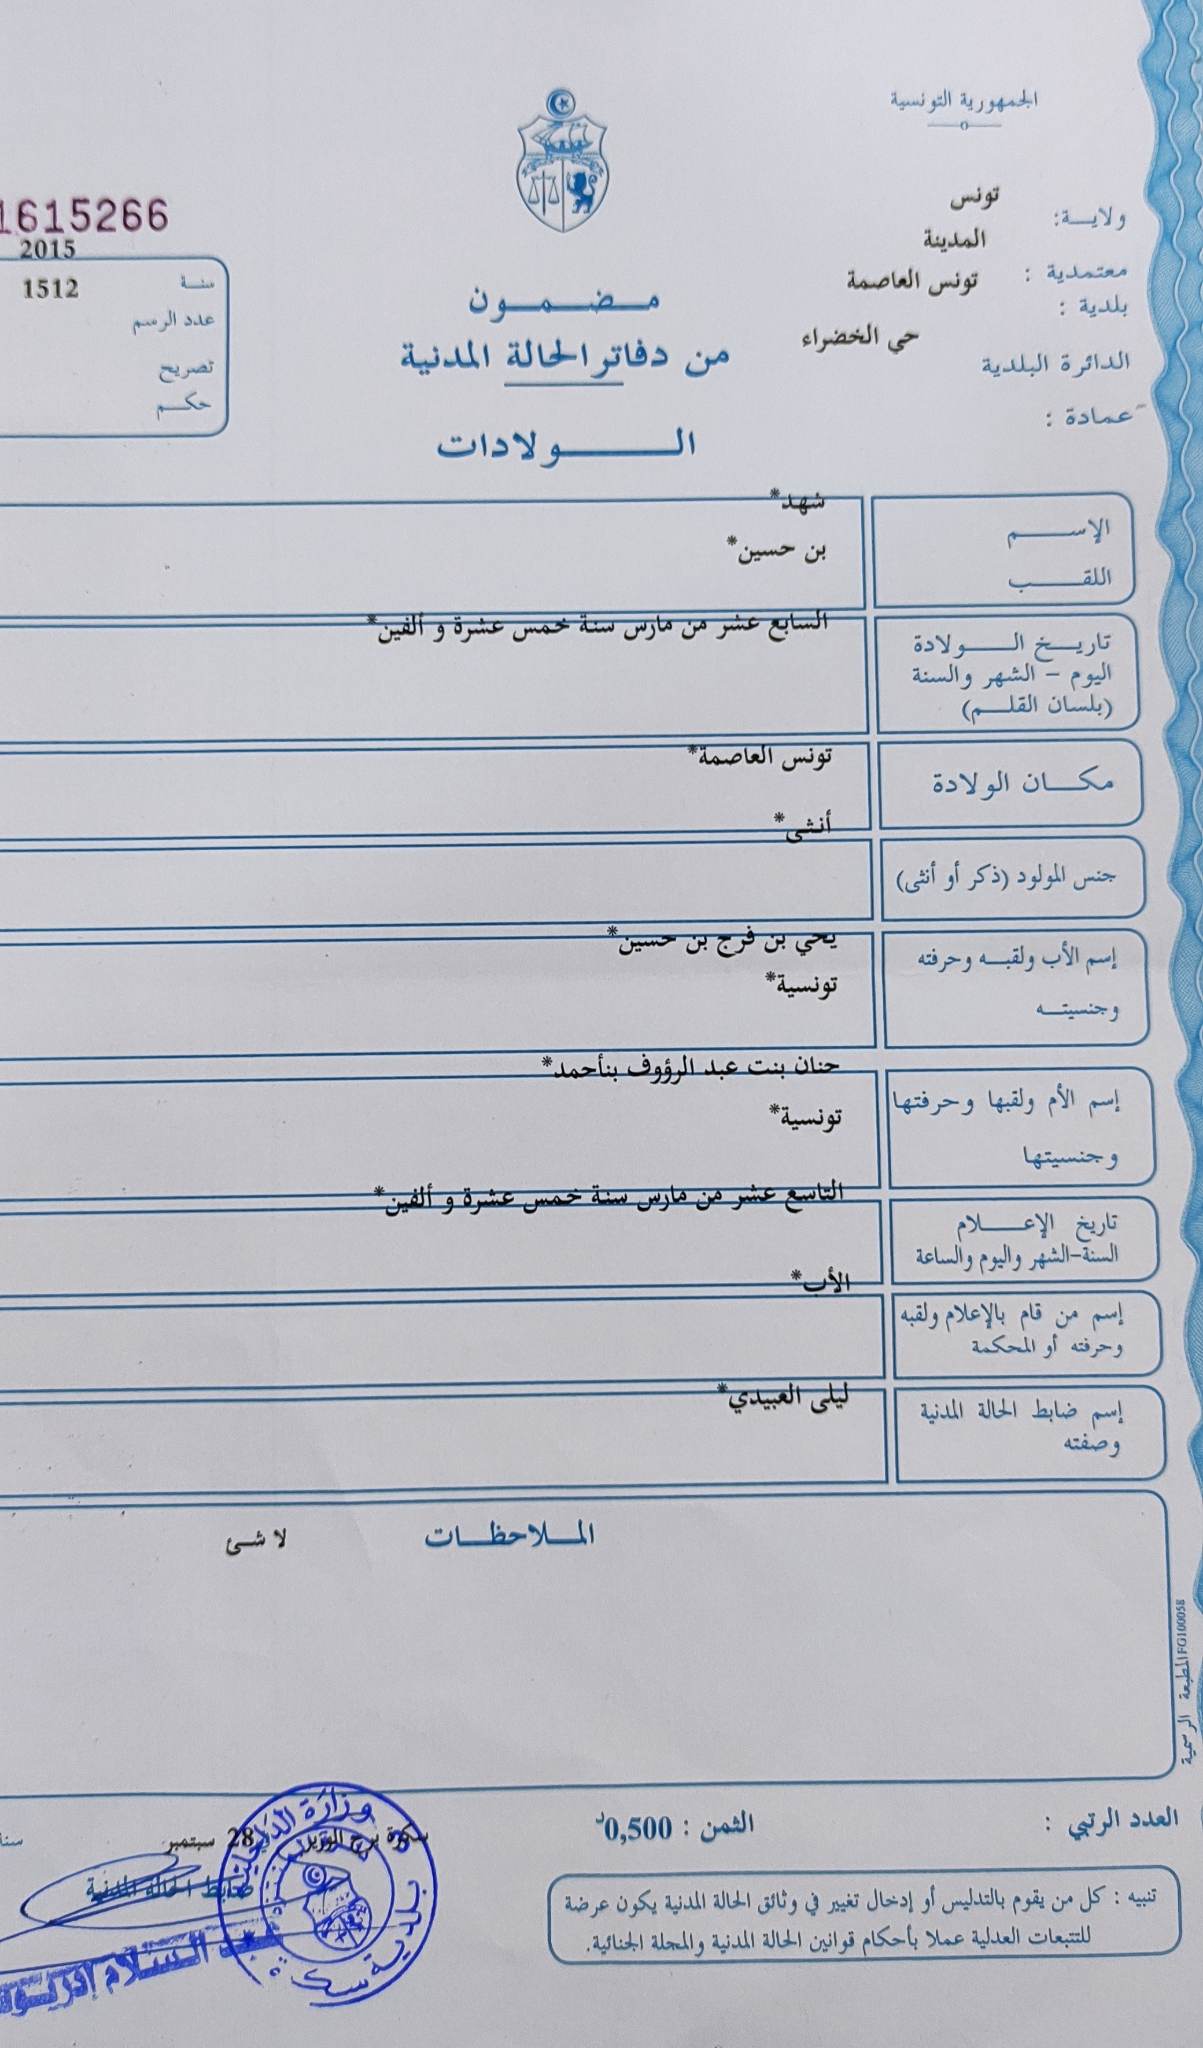 الجمهورية التونسية
ولايـــة: تونس
معتمدية : المدينة
بلدية : تونس العاصمة
الدائرة البلدية حي الخضراء
عمادة :
مـضـمـون
من دفاتر الحالة المدنية
الـولادات
1615266
2015
سنـة 1512
عدد الرسم
تصريح
حكـم
الإســـم شهد*
اللقـــب بن حسين*
تاريـخ الــولادة السابع عشر من مارس سنة خمس عشرة و ألفين*
اليوم - الشهر والسنة
(بلسان القلـم)
مكـــان الولادة تونس العاصمة*
أنثى*
جنس المولود (ذكر أو أنثى)
إسم الأب ولقبـه وحرفته يحي بن فرج بن حسين*
وجنسيتـه تونسية*
إسم الأم ولقبها وحرفتها حنان بنت عبد الرؤوف بنأحمد*
وجنسيتها تونسية*
التاسع عشر من مارس سنة خمس عشرة و ألفين*
تاريخ الإعـــلام
السنة-الشهر واليوم والساعة
الأب*
إسم من قام بالإعلام ولقبه
وحرفته أو المحكمة
ليلى العبيدي*
إسم ضابط الحالة المدنية
وصفته
المـلاحظـات لا شئ
المطبعة الرسمية FG100058
العدد الرتبي :
الثمن : 0,500د
سكرة برج الوزير 28 سبتمبر سنة
ضابط الحالة المدنية
وزارة الداخلية
بلدية سكرة
عبد السلام
تنبيه : كل من يقوم بالتدليس أو إدخال تغيير في وثائق الحالة المدنية يكون عرضة
للتتبعات العدلية عملا بأحكام قوانين الحالة المدنية والمجلة الجنائية.